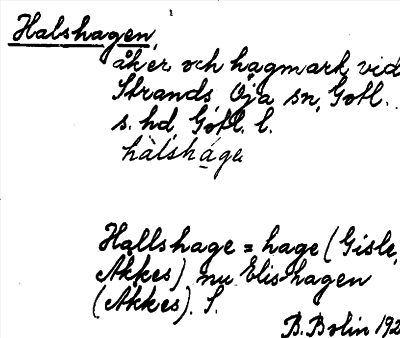 Halshagen,
åker och hagmark vid
Strands, Öja sn, Gotl.
s. hd, Gotl. l.
hàlsháge
Hallshage = hage (Gisle,
Akkes) nu Elishagen
(Akkes). S.
B. Bolin 192